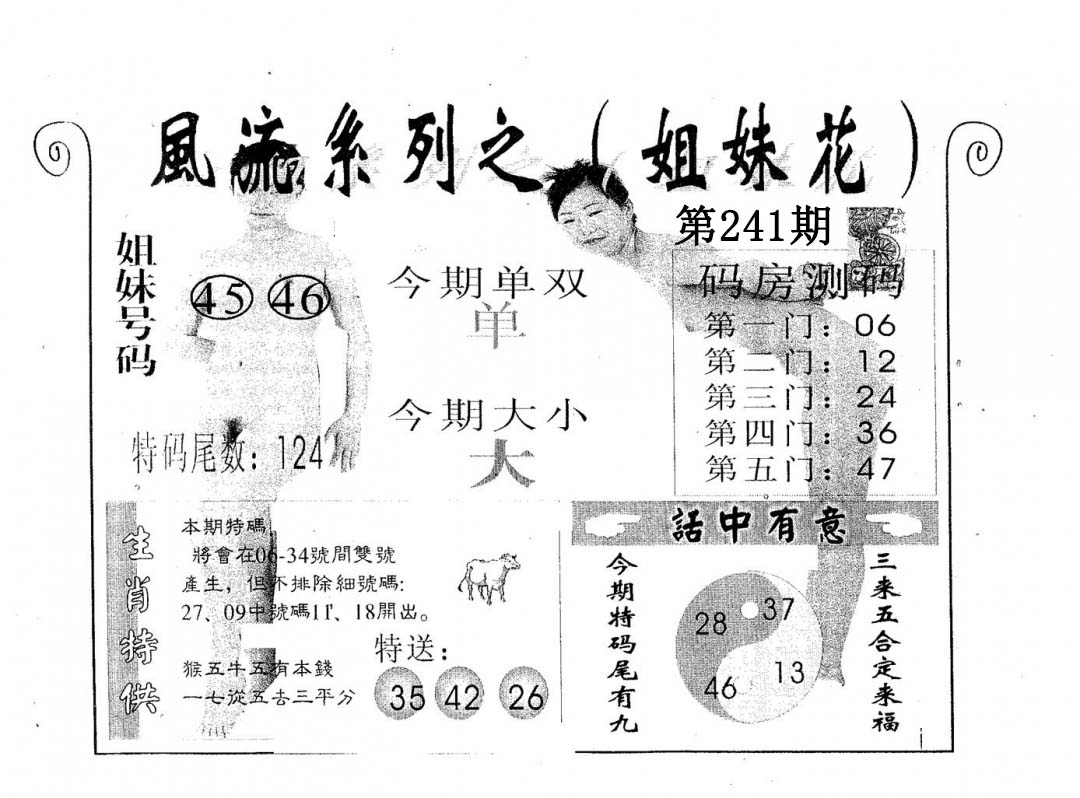 風流系列之（姐妹花）
第241期
姐妹号码
45 46
今期单双
单
今期大小
大
特码尾数：124
码房测码
第一门：06
第二门：12
第三门：24
第四门：36
第五门：47
生肖特供
本期特碼
將會在06-34號間雙號
產生，但不排除細號碼:
27、09中號碼11、18開出。
猴五牛五有本錢
一七從五去三平分
特送：
35 42 26
話中有意
今期特码尾有九
28 37
46 13
三来五合定来福